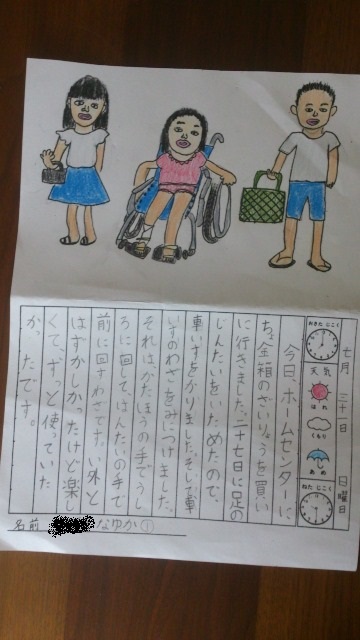 七月 三十一日 日曜日
おきたじこく
天気
はれ
くもり
あめ
ねたじこく
今日、ホームセンターに
ちょ金箱のざいりょうを買い
に行きました。二十七日に足の
じんたいをいためたので、
車いすをかりました。そして、車
いすのわざをみにつけました。
それは、かたほうの手でうし
ろに回して、はんたいの手で
前に回すわざです。い外と
はずかしかったけど楽し
くて、ずっと使っていた
かったです。
名前 なゆか①